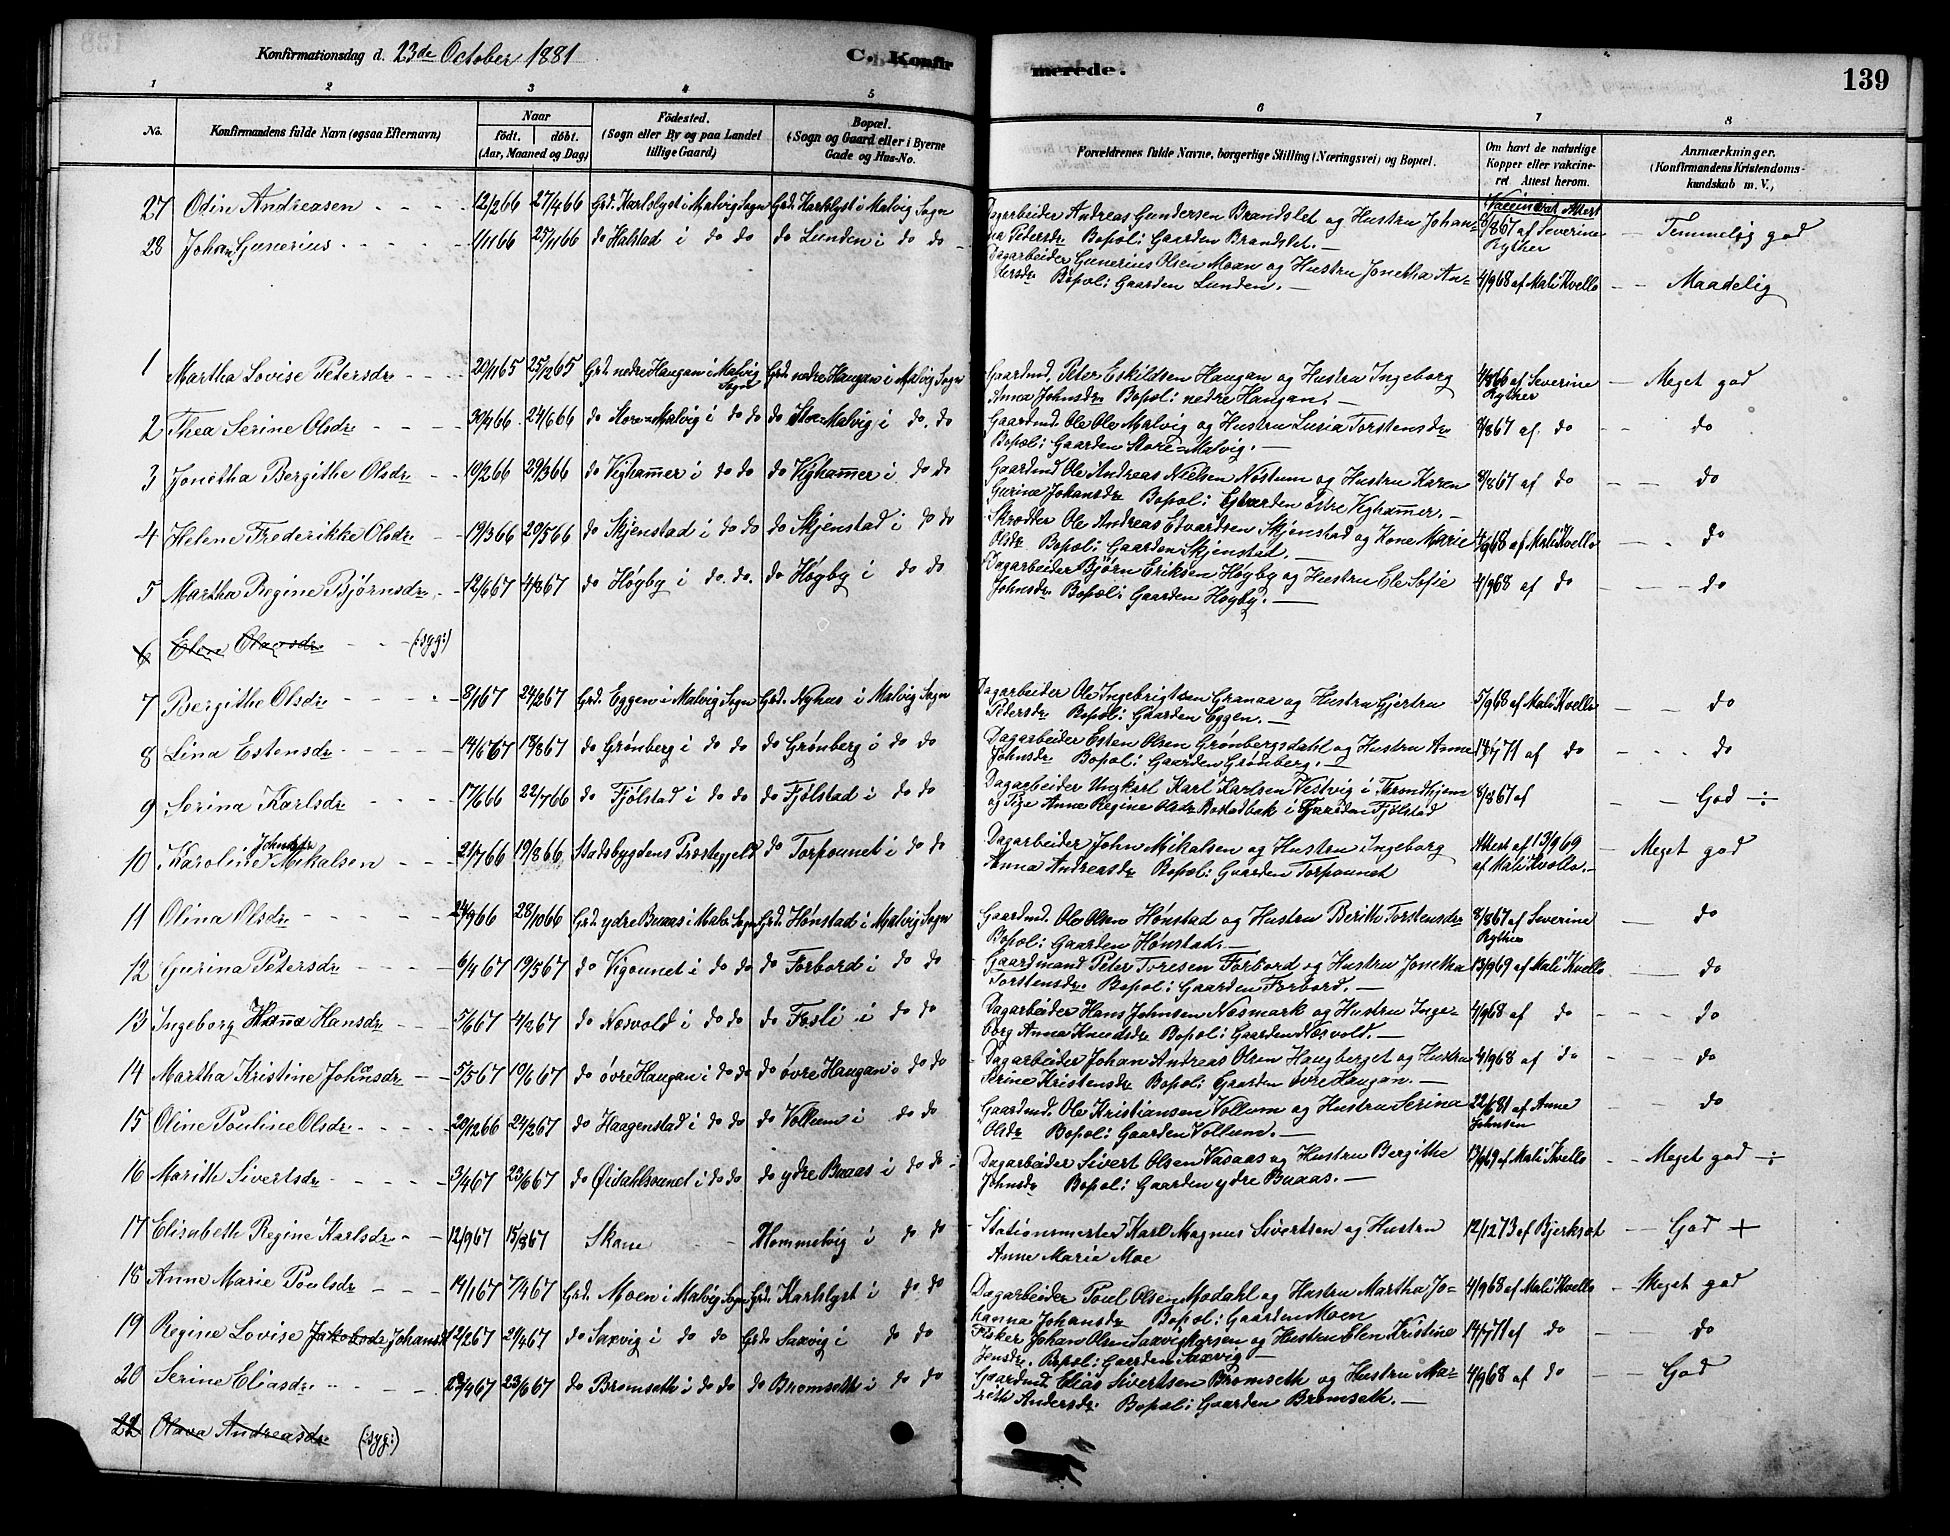 Konfirmationsdag d. 23de October 1881
C. Konfirmerede.
139
1 2 3 4 5 6 7 8
No.
Konfirmandens fulde Navn (ogsaa Efternavn)
Naar
født. døbt.
(Aar, Maaned og Dag)
Fødested.
(Sogn eller By og paa Landet
tillige Gaard)
Bopæl.
(Sogn og Gaard eller i Byerne
Gade og Hus-No.
Forældrenes fulde Navne, borgerlige Stilling (Næringsvei) og Bopæl.
Om havt de naturlige
Kopper eller vakcine-
ret Attest herom.
Anmærkninger.
(Konfirmandens Kristendoms-
kundskab m. V.)
27 Odin Andreasen 12/2 66 27/4 66 Grd. Karlslyst i Malvig Sogn Grd. Karlslyst i Malvig Sogn Dagarbeider Andreas Gundersen Brandslet og Hustru Johan-
na Petersdr Bopæl: Gaarden Brandslet. 8/8 67 af Severine Ryther Temmelig god
28 Johan Gunerius 1/11 66 25/11 66 do Halstad i do do do Lunden i do do Dagarbeider Gunerius Olsen Moan og Hustru Jonetha An-
dersdr Bopæl: Gaarden Lunden. 4/9 68 af Mali Kvello Maadelig
1 Martha Lovise Petersdr 20/1 65 25/12 65 Grd. nedre Haugan i Malvig Sogn Grd. nedre Haugan i Malvig Sogn Gaardmd. Peter Eskildsen Haugan og Hustru Ingeborg
Anna Johnsdr Bopæl: nedre Haugan. 4/8 66 af Severine Ryther Meget god
2 Thea Serine Olsdr 30/4 66 24/6 66 do Store-Malvig i do do do Store Malvig i do. do Gaardmd. Ole Ols Malvig og Hustru Luria Torstensdr
Bopæl: Gaarden Store-Malvig. 8/8 67 af do do
3 Jonetha Bergithe Olsdr 10/2 66 29/3 66 do Vighammer i do do do Vighammer i do do Gaardmd Ole Andreas Nielsen Nostum og Hustru Karen
Gurine Johansdr Bopæl: Gaarden østre Vighammer. 8/8 67 af do do
4 Helene Frederikke Olsdr 19/3 66 20/5 66 do Skjenstad i do do do Skjenstad i do do Skrædder Ole Andreas Edvardsen Skjenstad og Kone Marie
Olsdr Bopæl: Gaarden Skjenstad. 4/9 68 af Mali Kvello do
5 Martha Regine Bjørnsdr 12/6 67 4/8 67 do Høgby i do. do. do Høgby i do do Dagarbeider Bjørn Eriksen Høgby og Hustru Ele Sofie
Johnsdr Bopæl: Gaarden Høgby. 4/9 68 af do do
6 Eline Olavsdr (:syg:)
7 Bergithe Olsdr 8/1 67 24/2 67 Grd. Eggen i Malvig Sogn Grd. Nyhus i Malvig Sogn Dagarbeider Ole Ingebrigtsen Granaa og Hustru Gjertru
Pedersdr Bopæl: Gaarden Eggen. 5/9 68 af Mali Kvello do
8 Lina Estensdr 14/6 67 18/8 67 do Grønberg i do do do Grønberg i do do Dagarbeider Esten Olsen Grønbergsdahl og Hustru Anne
Johnsdr Bopæl: Gaarden Grønberg. 14/7 71 af do do
9 Serina Karlsdr 17/6 66 22/7 66 do Fjølstad i do do do Fjølstad i do do Dagarbeider Ungkarl Karl Karlsen Vestvig i Trondhjem
og Pige Anne Regine Olsdr Bostadbak i Gaarden Fjølstad 8/8 67 af God ÷
10 Karoline Johnsdr Mikalsen 21/7 66 19/8 66 Stadsbygdens Præstegjeld do Torpounet i do do Dagarbeider John Mikalsen og Hustru Ingeborg
Anna Andreasdr Bopæl: Gaarden Torpounet Attest af 13/9 69 af Mali Kvello. Meget god
11 Olina Olsdr 24/9 66 28/10 66 Grd. ydre Buaas i Malv. Sogn Grd. Hønstad i Malvig Sogn Gaardmd. Ole Olsen Hønstad og Hustru Berith Torstensdr
Bopæl: Gaarden Hønstad. 8/8 67 af Severine Ryther do
12 Gurina Petersdr 6/4 67 19/5 67 do Vigounet i do do do Forbord i do do Gaardmand Peter Toresen Forbord og Hustru Jonetha
Torstensdr. Bopæl: Gaarden Forbord. 13/9 69 af Mali Kvello do
13 Ingeborg Hanna Hansdr 5/6 67 4/2 67 do Næsvold i do do do Fosli i do do Dagarbeider Hans Johnsen Næsmark og Hustru Inge-
borg Anna Knudsdr Bopæl: Gaarden Næsvold. 4/9 68 af do do
14 Martha Kristine Johansdr 5/5 67 19/6 67 do øvre Haugan i do do do øvre Haugan i do do Dagarbeider Johan Andreas Olsen Haugberget og Hustru
Serine Kristensdr Bopæl: Gaarden øvre Haugan. 4/9 68 af do do
15 Oline Pouline Olsdr 20/12 66 24/2 67 do Haagenstad i do do do Vollum i do do Gaardmd. Ole Kristiansen Vollum og Hustru Serina
Olsdr Bopæl: Gaarden Vollum. 22/6 81 af Anne Johnsen do
16 Marith Sivertsdr 3/4 67 23/6 67 do Øidahlsounet i do do do ydre Buaas i do do Dagarbeider Sivert Olsen Vasaas og Hustru Bergithe
Johnsdr Bopæl: Gaarden ydre Buaas. 13/9 69 af Mali Kvello Meget god ÷
17 Elisabeth Regine Karlsdr 12/9 67 15/8 67 Skane Hommelvig i do do Stationsmester Karl Magnus Sivertsen og Hustru
Anne Marie Moe 12/12 73 af Bjerkset God +
18 Anne Marie Poulsdr 14/1 67 7/4 67 Grd. Moen i Malvig Sogn Grd. Karlslyst i do. do Dagarbeider Poul Olsen Modahl og Hustru Martha Jo-
hanna Johansdr Bopæl: Gaarden Moen 4/9 68 af Mali Kvello Meget god
19 Regine Lovise Jakobsdr Johansdr 12/2 67 21/4 67 do Saxvig i do do Grd. Saxvig i do do Fisker Johan Olsen Saxvig og Hustru Elen Kristine
Jensdr. Bopæl: Gaarden Saxvig 14/7 71 af do do
20 Serine Eliasdr 23/4 67 23/6 67 do Bromseth i do do do Bromseth i do do Gaardmd. Elias Sivertsen Bromseth og Hustru Ma-
rith Andersdr. Bopæl: Gaarden Bromseth. 4/9 68 af do God
21 Olava Andreasdr (:syg:)